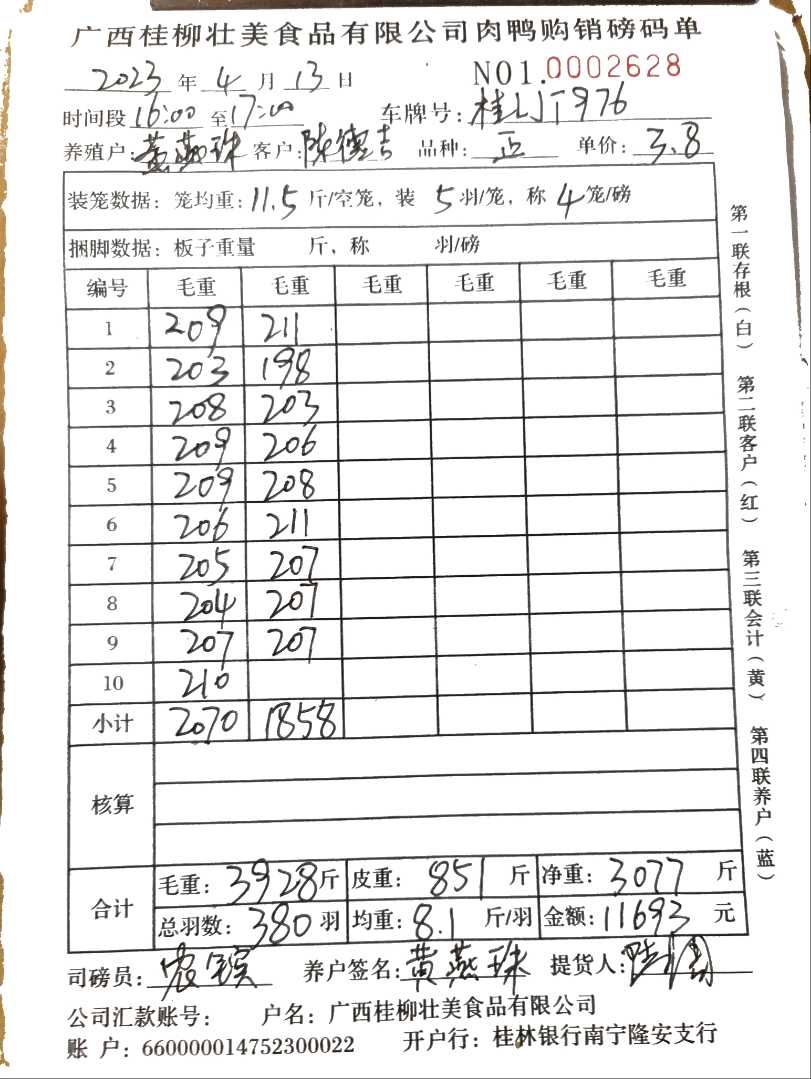 广西桂柳壮美食品有限公司肉鸭购销磅码单
2023 年 4 月 13 日 NO1.0002628
时间段 16:00 至 17:00 车牌号: 桂LJT976
养殖户: 黄燕珠 客户: 陈德吉 品种: 正 单价: 3.8
装笼数据: 笼均重: 11.5 斤/空笼, 装 5 羽/笼, 称 4 笼/磅
捆脚数据: 板子重量 斤, 称 羽/磅
编号 毛重 毛重 毛重 毛重 毛重 毛重
1 209 211
2 203 198
3 208 203
4 209 206
5 209 208
6 206 211
7 205 207
8 204 207
9 207 207
10 210
小计 2070 1858
核算
合计
毛重: 3928 斤 皮重: 851 斤 净重: 3077 斤
总羽数: 380 羽 均重: 8.1 斤/羽 金额: 11693 元
司磅员: 养户签名: 黄燕珠 提货人:
公司汇款账号: 户名: 广西桂柳壮美食品有限公司
账 户: 660000014752300022 开户行: 桂林银行南宁隆安支行
第一联存根(白) 第二联客户(红) 第三联会计(黄) 第四联养户(蓝)